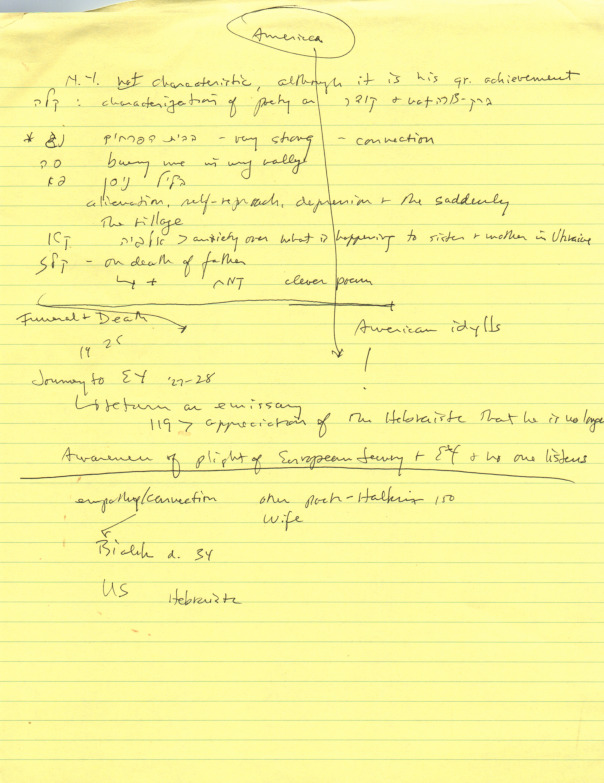 America
N.Y. not characteristic, although it is his gr. achievement
: characterization of poetry as
* - very strong - connection
bury me in my valley
ניסן
alienation, self-reproach, depression + the suddenly
the village
> anxiety over what is happening to sister + mother in Ukraine
- on death of father
↳ + clever poem
Funeral + Death
19 25
American idylls
!
Journey to EY '27-28
↳ return as emissary
119 > appreciation of the Hebraists that he is no longer
Awareness of plight of European Jewry + EY + no one listens
empathy/connection other poets - Halkin 150
wife
Bialik d. 34
US Hebraists